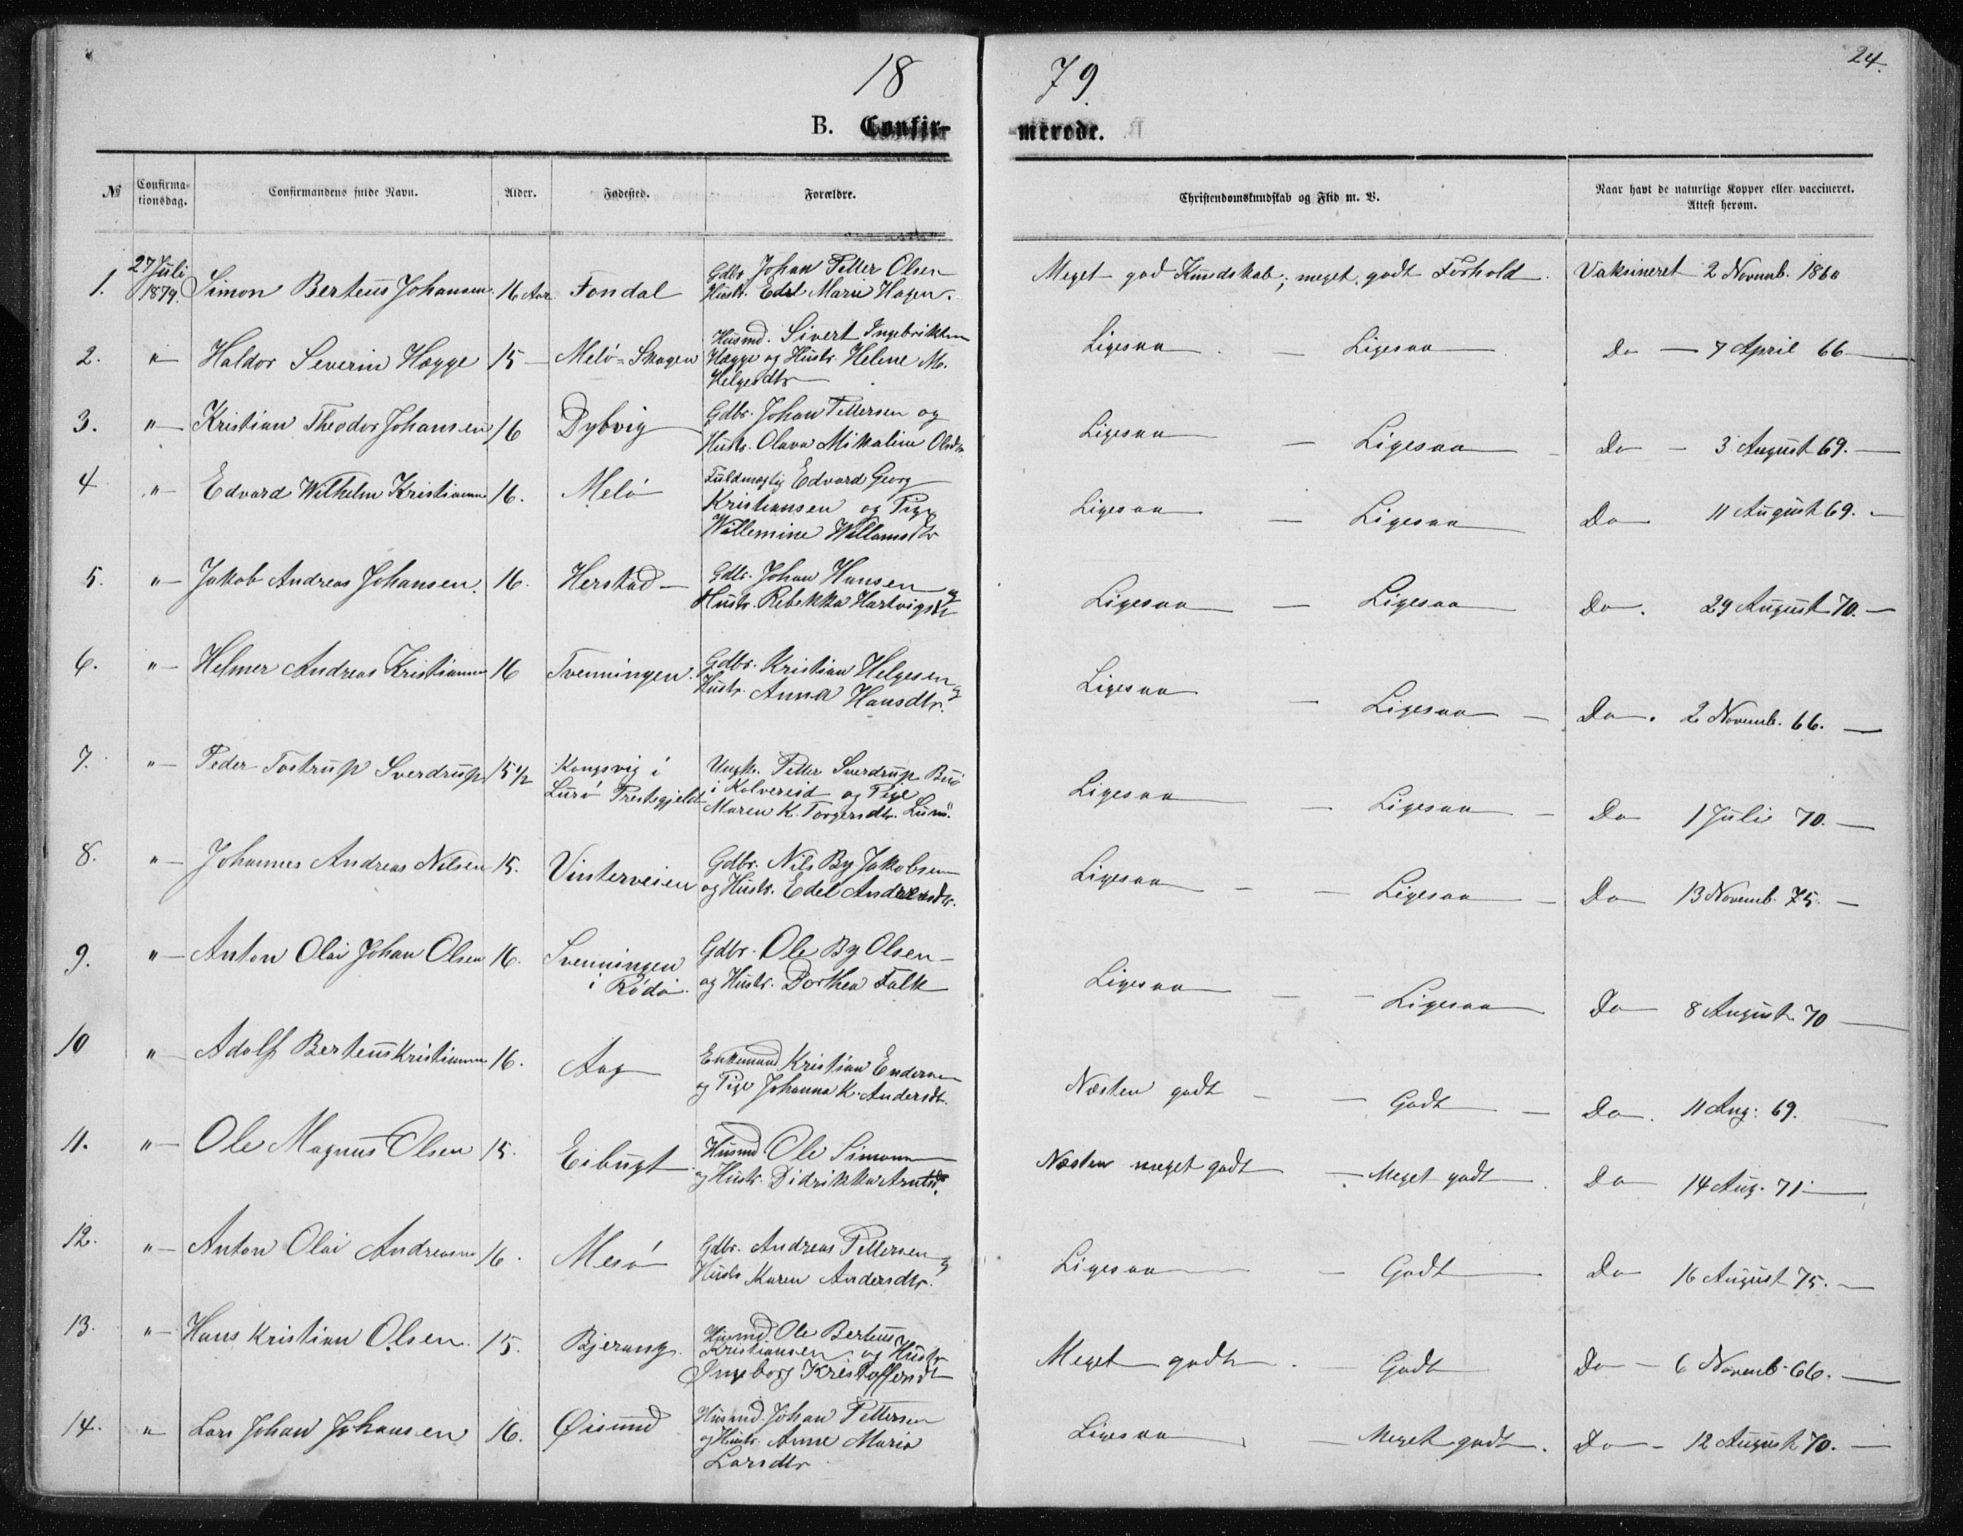 18 79.
24.
B. Confir- merede.
№
Confirma-
tionsdag.
Confirmandens fulde Navn.
Alder.
Fødested.
Forældre.
Christendomskundskab og Flid m. V.
Naar havt de naturlige Kopper eller vaccineret.
Attest herom.
1. 27 Juli 1879. Simon Berteus Johansen 16 Aar Fondal
Gdbr. Johan Petter Olsen
Hustr. Edel Marie Hagen.
Meget god Kundskab; meget godt Forhold. Vaksineret 2 Novemb. 1860
2. " Haldor Severin Hægge 15 Melö-Skagen
Husmd. Sivert Ingebriktsen
Hægge og Hustr. Helene M.
Helgesdtr
Ligesaa — Ligesaa Do — 7 April 66.
3. " Kristian Theodor Johansen 16 Dybvig
Gdbr. Johan Pettersen og
Hustr. Olava Mikaline Olsdtr
Ligesaa — Ligesaa — Do — 3 August 69.
4 " Edvard Wilhelm Kristiansen 16. Melö
Fuldmægtig Edvard Georg
Kristiansen og Pige
Willemine Willamsdtr
Ligesaa — Ligesaa Do 11 August 69.
5. " Jakob Andreas Johansen. 16. Herstad
Gdbr. Johan Hansen og
Hustr. Rebekka Hartvigsdtr
Ligesaa — Ligesaa Do. 29 August 70.
6. " Helmer Andreas Kristiansen 16 Tvenningen.
Gdbr. Kristian Helgesen og
Hustr. Anna Hansdtr.
Ligesaa — Ligesaa — Do. 2 Novemb. 66.
7. " Peder Tostrup Sverdrup 15 1/2
Kongsvig i
Lurö Prestegjeld
Ungk. Petter Sverdrup
i Kolvereid og Pige
Maren K. Torgersdtr. Lurö.
Ligesaa — Ligesaa — Do 1 Juli 70.
8. " Johannes Andreas Nilsen 15. Vinterveien
Gdbr. Nils By Jakobsen
og Hustr. Edel Andreasdtr.
Ligesaa — — Ligesaa — Do 13 Novemb. 75.
9. " Anton Olai Johan Olsen 16.
Svenningen
i Rödö.
Gdbr. Ole By Olsen
og Hustr. Dorthea Falk
Ligesaa — — Ligesaa Do 8 August 70
10 " Adolf Berteus Kristiansen 16. Aag
Enkemand Kristian Endersen
og Pige Johanna K. Andersdt.
Næsten godt — — Godt — Do. 11 Aug. 69.
11. " Ole Magnus Olsen 15. Eibugt
Husmd Ole Simonsen
og Hustr. Didrikka Arntsd.
Næsten meget godt — Meget godt. Do 14 Aug. 71
12. " Anton Olai Andreasen 16. Mesö
Gdbr. Andreas Pettersen og
Hustr Karen Andersdtr.
Ligesaa — Godt Do 16 August 75.
13. " Hans Kristian Olsen. 15. Bjerang.
Husmd Ole Berteus
Kristiansen og Hustr
Ingeborg Kristoffersdt
Meget godt. — Godt Do — 6 Novemb. 66.
14. " Lars Johan Johansen 16. Øisund
Husmd. Johan Pettersen
og Hustr. Anne Maria
Larsdtr
Ligesaa — Meget godt. Do — 12 August 70.